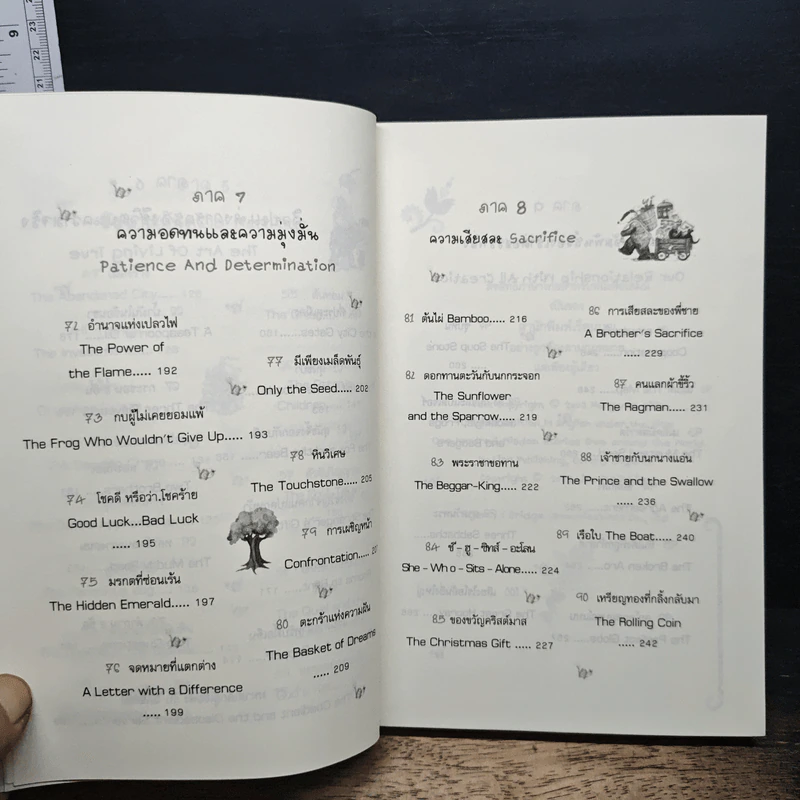 9
23
22
21
ภาค 7
ความอดทนและความมุ่งมั่น
Patience And Determination
72 อำนาจแห่งเปลวไฟ
The Power of
the Flame..... 192
73 กบผู้ไม่เคยยอมแพ้
The Frog Who Wouldn't Give Up..... 193
74 โชคดี หรือว่า.โชคร้าย
Good Luck...Bad Luck
..... 195
75 มรกตที่ซ่อนเร้น
The Hidden Emerald..... 197
76 จดหมายที่แตกต่าง
A Letter with a Difference
..... 199
77 มีเพียงเมล็ดพันธุ์
Only the Seed..... 202
78 หินวิเศษ
The Touchstone..... 205
79 การเผชิญหน้า
Confrontation.....
80 ตะกร้าแห่งความฝัน
The Basket of Dreams
..... 209
ภาค 8
ความเสียสละ Sacrifice
81 ต้นไผ่ Bamboo..... 216
82 ดอกทานตะวันกับนกกระจอก
The Sunflower
and the Sparrow..... 219
83 พระราชาขอทาน
The Beggar-King..... 222
84 ชี-ฮู-ซิทส์-อะโลน
She-Who-Sits-Alone..... 224
85 ของขวัญคริสต์มาส
The Christmas Gift ..... 227
86 การเสียสละของพี่ชาย
A Brother's Sacrifice
..... 229
87 คนแลกผ้าขี้ริ้ว
The Ragman..... 231
88 เจ้าชายกับนกนางแอ่น
The Prince and the Swallow
..... 236
89 เรือใบ The Boat..... 240
90 เหรียญทองที่กลิ้งกลับมา
The Rolling Coin
..... 242